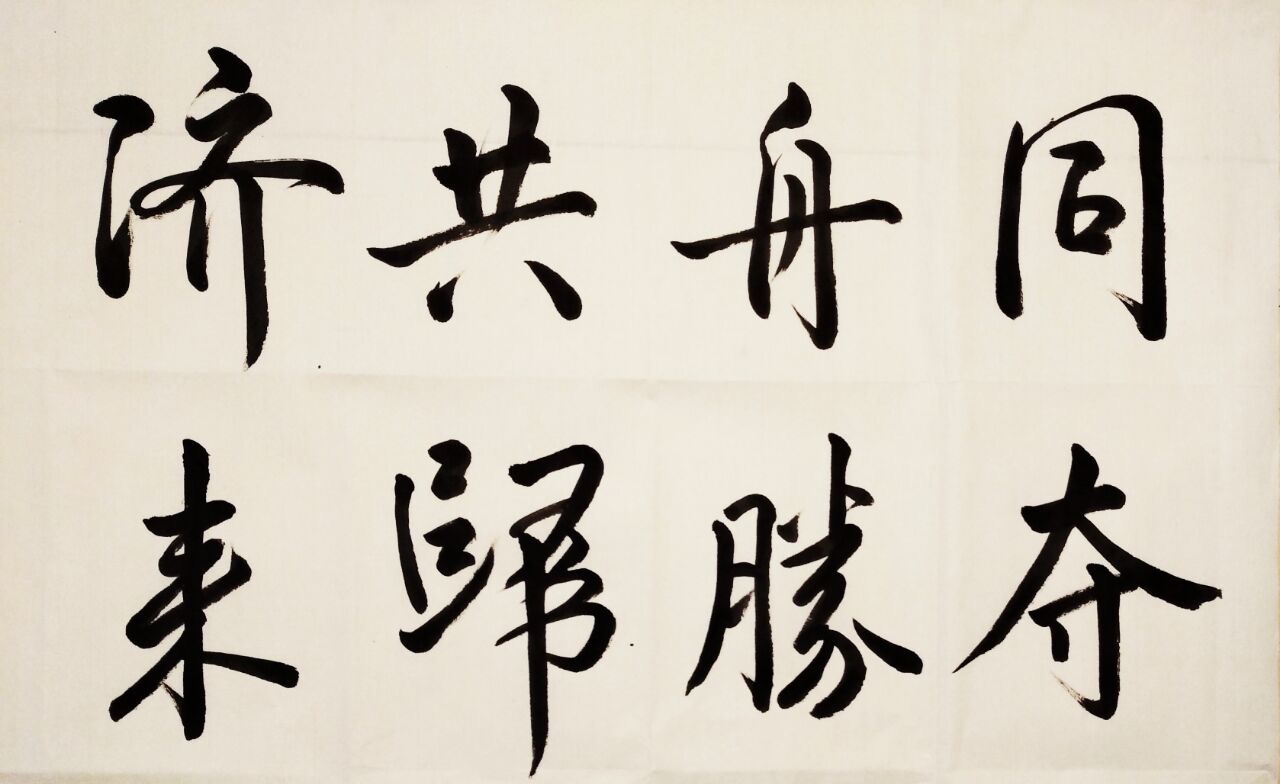 同舟共济
夺勝歸来